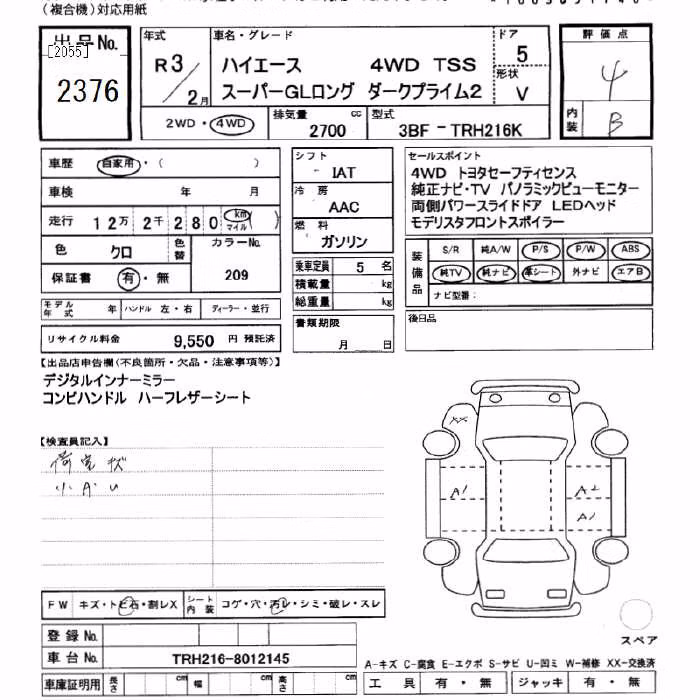 (複合機)対応用紙
出品No.
[2055]
2376
年式
R3/2月
車名・グレード
ハイエース 4WD TSS
スーパーGLロング ダークプライム2
ドア
5
形状
V
2WD・4WD
排気量 cc
2700
型式
3BF-TRH216K
評価点
4
内装
B
車歴 自家用・( )
車検 年 月
走行 12万 2千 280 km マイル ( )
色 クロ
色替
カラーNo.
209
保証書 有・無
モデル年式 年 ハンドル 左・右 ディーラー・並行
リサイクル料金 9,550 円 預託済
シフト
IAT
冷房
AAC
燃料
ガソリン
乗車定員 5 名
積載量 kg
総重量 kg
書類期限
月 日
セールスポイント
4WD トヨタセーフティセンス
純正ナビ・TV パノラミックビューモニター
両側パワースライドドア LEDヘッド
モデリスタフロントスポイラー
装備品
S/R 純A/W P/S P/W ABS
純TV 純ナビ 革シート 外ナビ エアB
ナビ型番:
後日品
【出品店申告欄(不良箇所・欠品・注意事項等)】
デジタルインナーミラー
コンビハンドル ハーフレザーシート
【検査員記入】
荷室キズ
小AU
XX
A1
A2
A1
FW キズ・トビ石・割レX
シート内装 コゲ・穴・汚レ・シミ・破レ・スレ
登録No.
車台No. TRH216-8012145
車庫証明用 長さ cm 幅 cm cm
スペア
A-キズ C-腐食 E-エクボ S-サビ U-凹ミ W-補修 XX-交換済
工具 有・無 ジャッキ 有・無